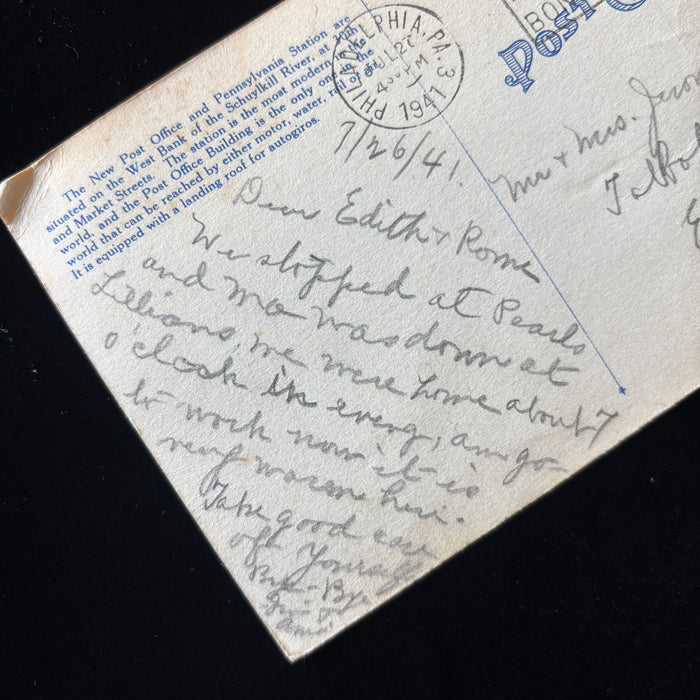 The New Post Office and Pennsylvania Station are
situated on the West Bank of the Schuylkill River, at 30th
and Market Streets. The station is the most modern in the
world, and the Post Office Building is the only one in the
world that can be reached by either motor, water, rail or air.
It is equipped with a landing roof for autogiros.
PHILADELPHIA, PA. 3
JUL 26
430 PM
1941
BO
POST C
7/26/41.
Mr & Mrs. Jero
Talbo
Dear Edith & Rome
We stopped at Pearls
and ma was down at
Lillians, we were home about 7
o'clock in eveng, am go-
to work now it is
very warm here.
Take good care
off Yourself
Bye-Bye